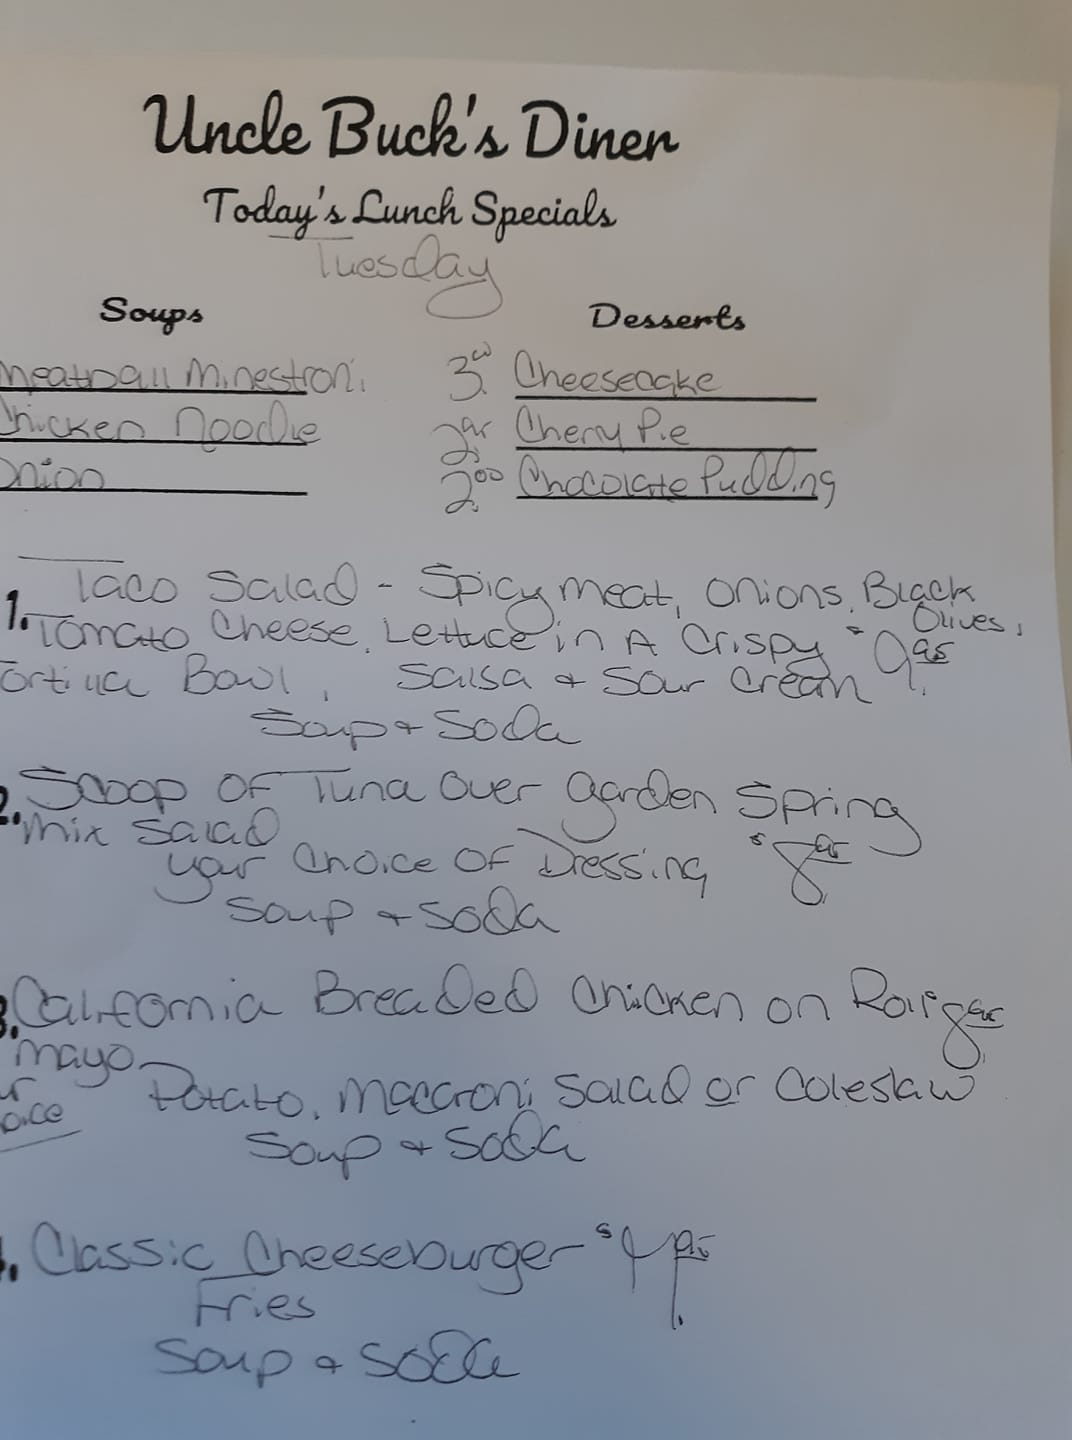 Uncle Buck's Diner
Today's Lunch Specials
Tuesday
Soups
Desserts
Meatball Minestroni
3.00 Cheesecake
Chicken Noodle
Cherry Pie
Onion
2.00 Chocolate Pudding
1. Taco Salad - Spicy meat, Onions, Black Olives,
Tomato Cheese, Lettuce in A Crispy $9.95
Tortilla Bowl, Salsa + Sour Cream
Soup + Soda
2. Scoop OF Tuna Over garden Spring
Mix Salad
your Choice OF Dressing $8.95
Soup + Soda
3. California Breaded Chicken on Roll
mayo
Potato, Macaroni Salad or Coleslaw
Soup + Soda
Classic Cheeseburger
Fries
Soup + Soda